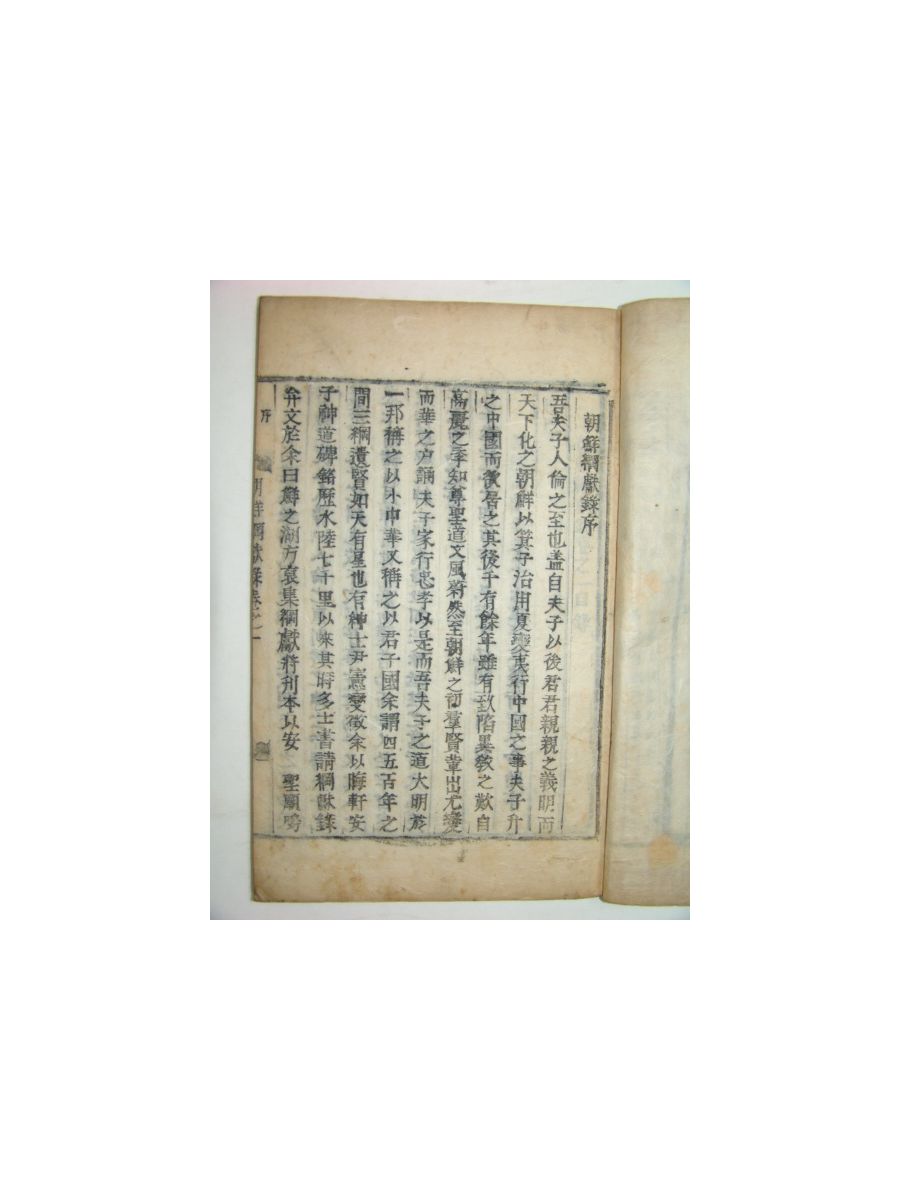 朝鮮綱獻錄序
吾夫子人倫之至也盖自夫子以後君君親親之義明而
天下化之朝鮮以箕子治用夏變夷行中國之事夫子升
之中國而欲居之其後千有餘年雖有致陷異敎之歎自
高麗之季知尊聖道文風蔚然至朝鮮之初羣賢輩出尤變
而華之户誦夫子家行忠孝以是而吾夫子之道大明於
一邦稱之以小中華又稱之以君子國余謂四五百年之
間三綱遺賢如天有星也有紳士尹憲燮徵余以晦軒安
子神道碑銘歷水陸七千里以來其時多士書請綱獻錄
弁文於余曰鮮之湖方裒集綱獻將刊本以安 聖願嗚
序 朝鮮綱獻錄卷之一